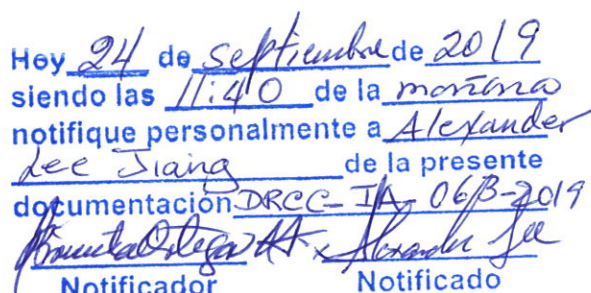 Hoy 24 de Septiembre de 2019
siendo las 11:40 de la mañana
notifique personalmente a Alexander
Lee Jiang de la presente
documentación DRCC-IA-06B-2019
Alexander Lee
Notificador Notificado